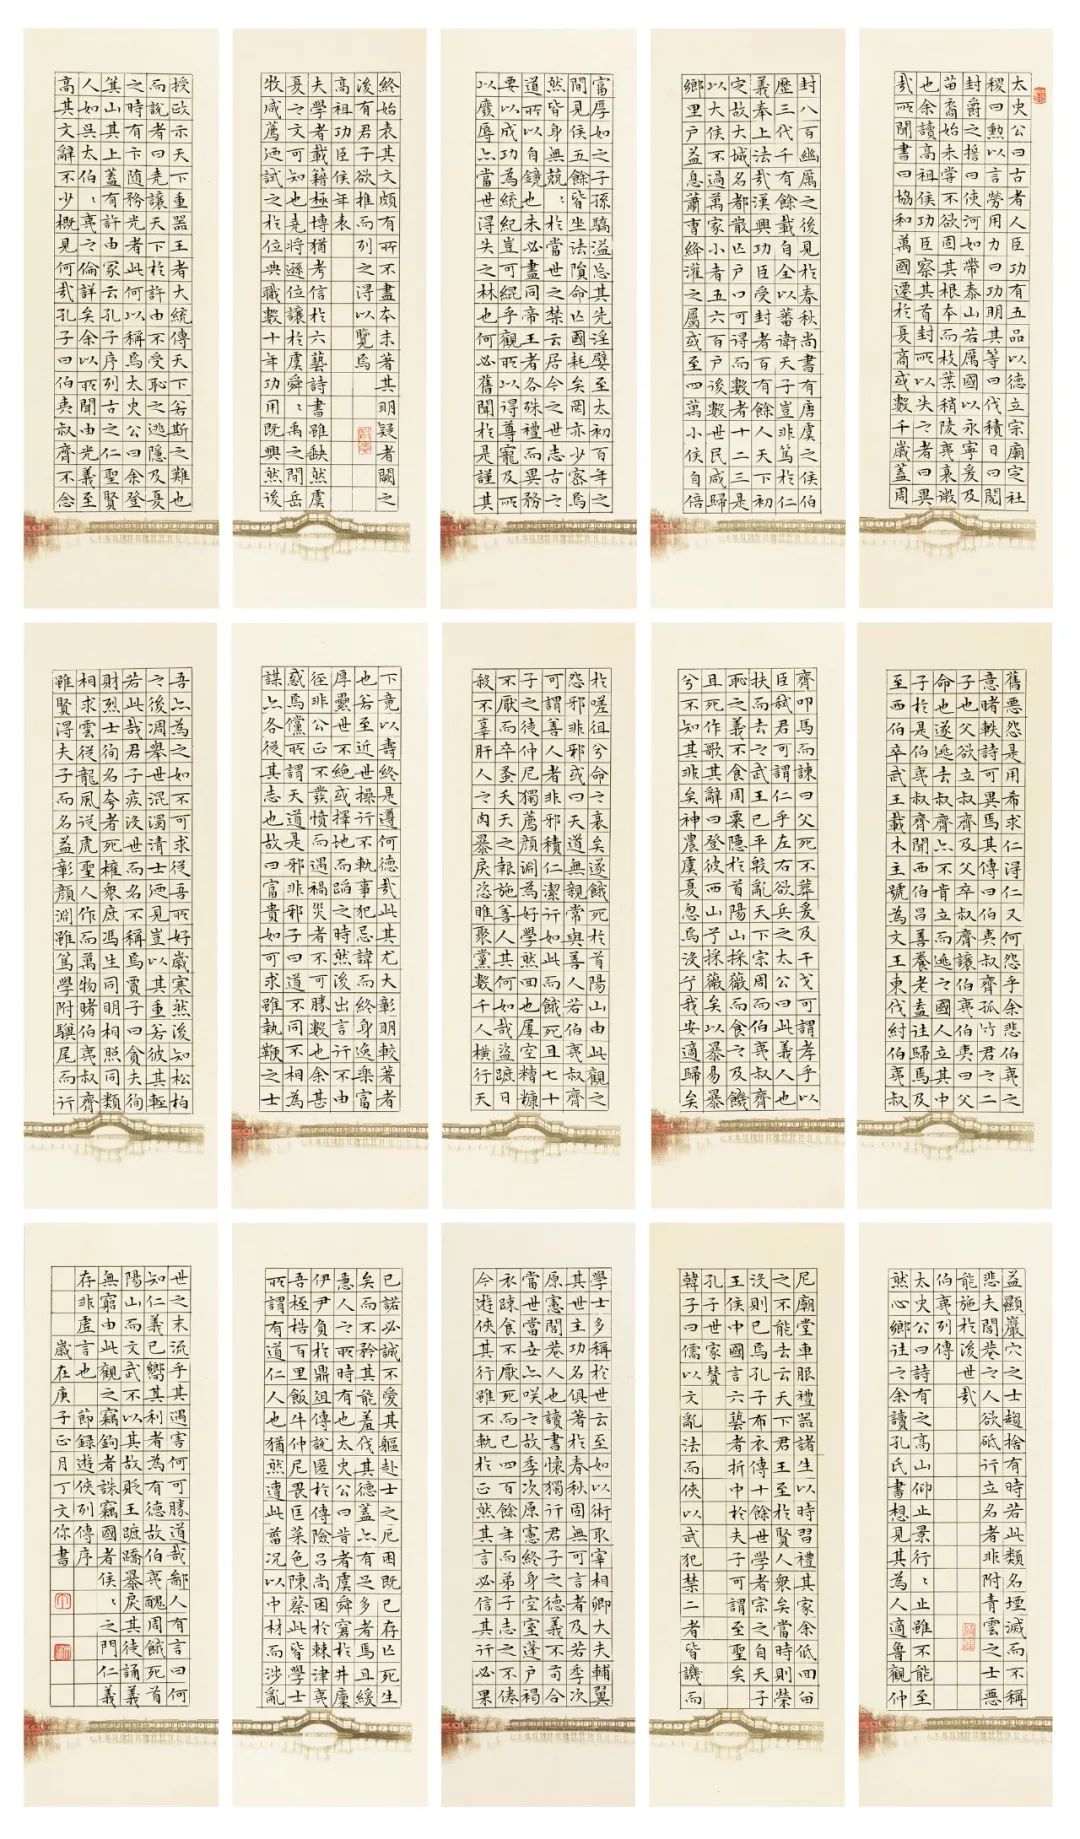 太史公曰古者人臣功有五品以德立宗廟定社
稷曰勲以言勞用力曰功明其等曰伐積日曰閱
封爵之誓曰使河如帶泰山若厲國以永寧爰及
苗裔始未嘗不欲固其根本而枝葉稍陵夷衰微
也余讀高祖侯功臣察其首封所以失之者曰異
哉所聞書曰協和萬國遷於夏商或數千歲蓋周
封八百幽厲之後見於春秋尚書有唐虞之侯伯
歷三代千有餘載自全以蕃衛天子豈非篤於仁
義奉上法哉漢興功臣受封者百有餘人天下初
定故大城名都散亡戶口可得而數者十二三是
以大侯不過萬家小者五六百戶後數世民咸歸
鄉里戶益息蕭曹絳灌之屬或至四萬小侯自倍
富厚如之子孫驕溢忘其先淫嬖至太初百年之
間見侯五餘皆坐法隕命亡國耗矣罔亦少密焉
然皆身無兢〻於當世之禁云居今之世志古之
道所以自鏡也未必盡同帝王者各殊禮而異務
要以成功為統紀豈可緄乎觀所以得尊寵及所
以廢辱亦當世得失之林也何必舊聞於是謹其
終始表其文頗有所不盡本末著其明疑者闕之
後有君子欲推而列之得以覽焉
高祖功臣侯年表
夫學者載籍極博猶考信於六藝詩書雖缺然虞
夏之文可知也堯將遜位讓於虞舜〻禹之間岳
牧咸薦迺試之於位典職數十年功用既興然後
授政示天下重器王者大統傳天下若斯之難也
而說者曰堯讓天下於許由不受恥之逃隱及夏
之時有卞隨務光者此何以稱焉太史公曰余登
箕山其上蓋有許由冢云孔子序列古之仁聖賢
人如吳太伯〻夷之倫詳矣余以所聞由光義至
高其文辭不少概見何哉孔子曰伯夷叔齊不念
舊惡怨是用希求仁得仁又何怨乎余悲伯夷之
意睹軼詩可異焉其傳曰伯夷叔齊孤竹君之二
子也父欲立叔齊及父卒叔齊讓伯夷伯夷曰父
命也遂逃去叔齊亦不肯立而逃之國人立其中
子於是伯夷叔齊聞西伯昌善養老盍往歸焉及
至西伯卒武王載木主號為文王東伐紂伯夷叔
齊叩馬而諫曰父死不葬爰及干戈可謂孝乎以
臣弒君可謂仁乎左右欲兵之太公曰此義人也
扶而去之武王已平殷亂天下宗周而伯夷叔齊
恥之義不食周粟隱於首陽山採薇而食之及饑
且死作歌其辭曰登彼西山兮採薇矣以暴易暴
兮不知其非矣神農虞夏忽焉沒兮我安適歸矣
於嗟徂兮命之衰矣遂餓死於首陽山由此觀之
怨邪非邪或曰天道無親常與善人若伯夷叔齊
可謂善人者非邪積仁潔行如此而餓死且七十
子之徒仲尼獨薦顏淵為好學然回也屢空糟糠
不厭而卒蚤夭天之報施善人其何如哉盜蹠日
殺不辜肝人之肉暴戾恣睢聚黨數千人橫行天
下竟以壽終是遵何德哉此其尤大彰明較著者
也若至近世操行不軌事犯忌諱而終身逸樂富
厚累世不絕或擇地而蹈之時然後出言行不由
徑非公正不發憤而遇禍災者不可勝數也余甚
惑焉儻所謂天道是邪非邪子曰道不同不相為
謀亦各從其志也故曰富貴如可求雖執鞭之士
吾亦為之如不可求從吾所好歲寒然後知松柏
之後凋舉世混濁清士迺見豈以其重若彼其輕
若此哉君子疾沒世而名不稱焉賈子曰貪夫徇
財烈士徇名夸者死權衆庶馮生同明相照同類
相求雲從龍風從虎聖人作而萬物睹伯夷叔齊
雖賢得夫子而名益彰顏淵雖篤學附驥尾而行
益顯巖穴之士趨捨有時若此類名堙滅而不稱
悲夫閭巷之人欲砥行立名者非附青雲之士惡
能施於後世哉
伯夷列傳
太史公曰詩有之高山仰止景行〻止雖不能至
然心鄉往之余讀孔氏書想見其為人適魯觀仲
尼廟堂車服禮器諸生以時習禮其家余低回留
之不能去云天下君王至於賢人衆矣當時則榮
沒則已焉孔子布衣傳十餘世學者宗之自天子
王侯中國言六藝者折中於夫子可謂至聖矣
孔子世家贊
韓子曰儒以文亂法而俠以武犯禁二者皆譏而
學士多稱於世云至如以術取宰相卿大夫輔翼
其世主功名俱著於春秋固無可言者及若季次
原憲閭巷人也讀書懷獨行君子之德義不苟合
當世當世亦笑之故季次原憲終身空室蓬戶褐
衣疎食不厭死而已四百餘年而弟子志之不倦
今遊俠其行雖不軌於正然其言必信其行必果
已諾必誠不愛其軀赴士之厄困既已存亡死生
矣而不矜其能羞伐其德蓋亦有足多者焉且緩
急人之所時有也太史公曰昔者虞舜窘於井廩
伊尹負於鼎俎傅說匿於傅險呂尚困於棘津夷
吾桎梏百里飯牛仲尼畏匡菜色陳蔡此皆學士
所謂有道仁人也猶然遭此菑況以中材而涉亂
世之末流乎其遇害何可勝道哉鄙人有言曰何
知仁義已嚮其利者為有德故伯夷醜周餓死首
陽山而文武不以其故貶王蹠蹻暴戾其徒誦義
無窮由此觀之竊鉤者誅竊國者侯〻之門仁義
存非虛言也 節錄遊俠列傳序
歲在庚子正月丁文你書